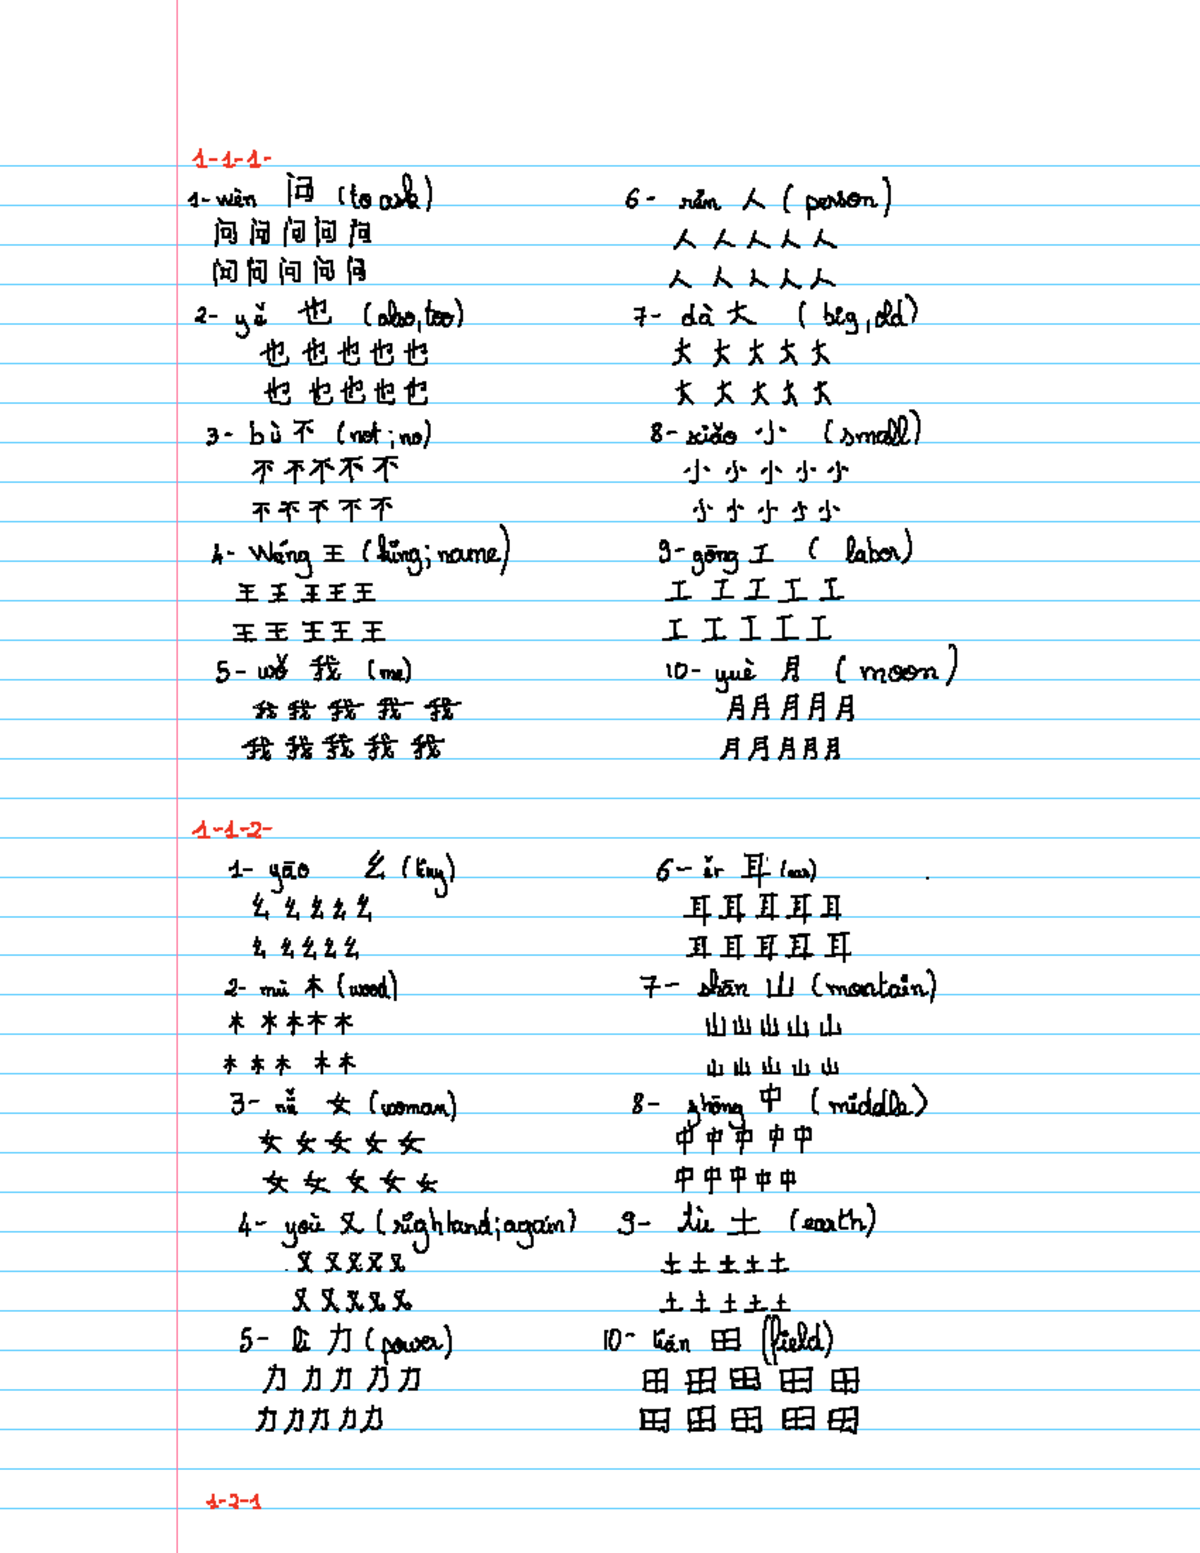 1-1-1-
1- wèn 问 (to ask)
问 问 问 问 问
问 问 问 问 问
2- yě 也 (also, too)
也 也 也 也 也
也 也 也 也 也
3- bù 不 (not; no)
不 不 不 不 不
不 不 不 不 不
4- Wáng 王 (king; name)
王 王 王 王 王
王 王 王 王 王
5- wǒ 我 (me)
我 我 我 我 我
我 我 我 我 我
6- rén 人 (person)
人 人 人 人 人
人 人 人 人 人
7- dà 大 (big, old)
大 大 大 大 大
大 大 大 大 大
8- xiǎo 小 (small)
小 小 小 小 小
小 小 小 小 小
9- gōng 工 (labor)
工 工 工 工 工
工 工 工 工 工
10- yuè 月 (moon)
月 月 月 月 月
月 月 月 月 月
1-1-2-
1- yāo 幺 (tiny)
幺 幺 幺 幺 幺
幺 幺 幺 幺 幺
2- mù 木 (wood)
木 木 木 木 木
木 木 木 木 木
3- nǚ 女 (woman)
女 女 女 女 女
女 女 女 女 女
4- yoù 又 (right hand; again)
又 又 又 又 又
又 又 又 又 又
5- lì 力 (power)
力 力 力 力 力
力 力 力 力 力
6- ěr 耳 (ear)
耳 耳 耳 耳 耳
耳 耳 耳 耳 耳
7- shān 山 (montain)
山 山 山 山 山
山 山 山 山 山
8- zhōng 中 (middle)
中 中 中 中 中
中 中 中 中 中
9- 土 (earth)
土 土 土 土 土
土 土 土 土 土
10- tián 田 (field)
田 田 田 田 田
田 田 田 田 田
1-2-1